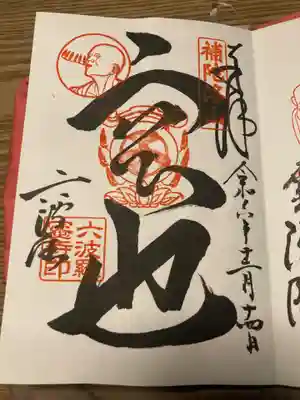 奉拝
令和六年十二月十四日
補陀洛
空也
六波羅
六波羅
蜜寺印